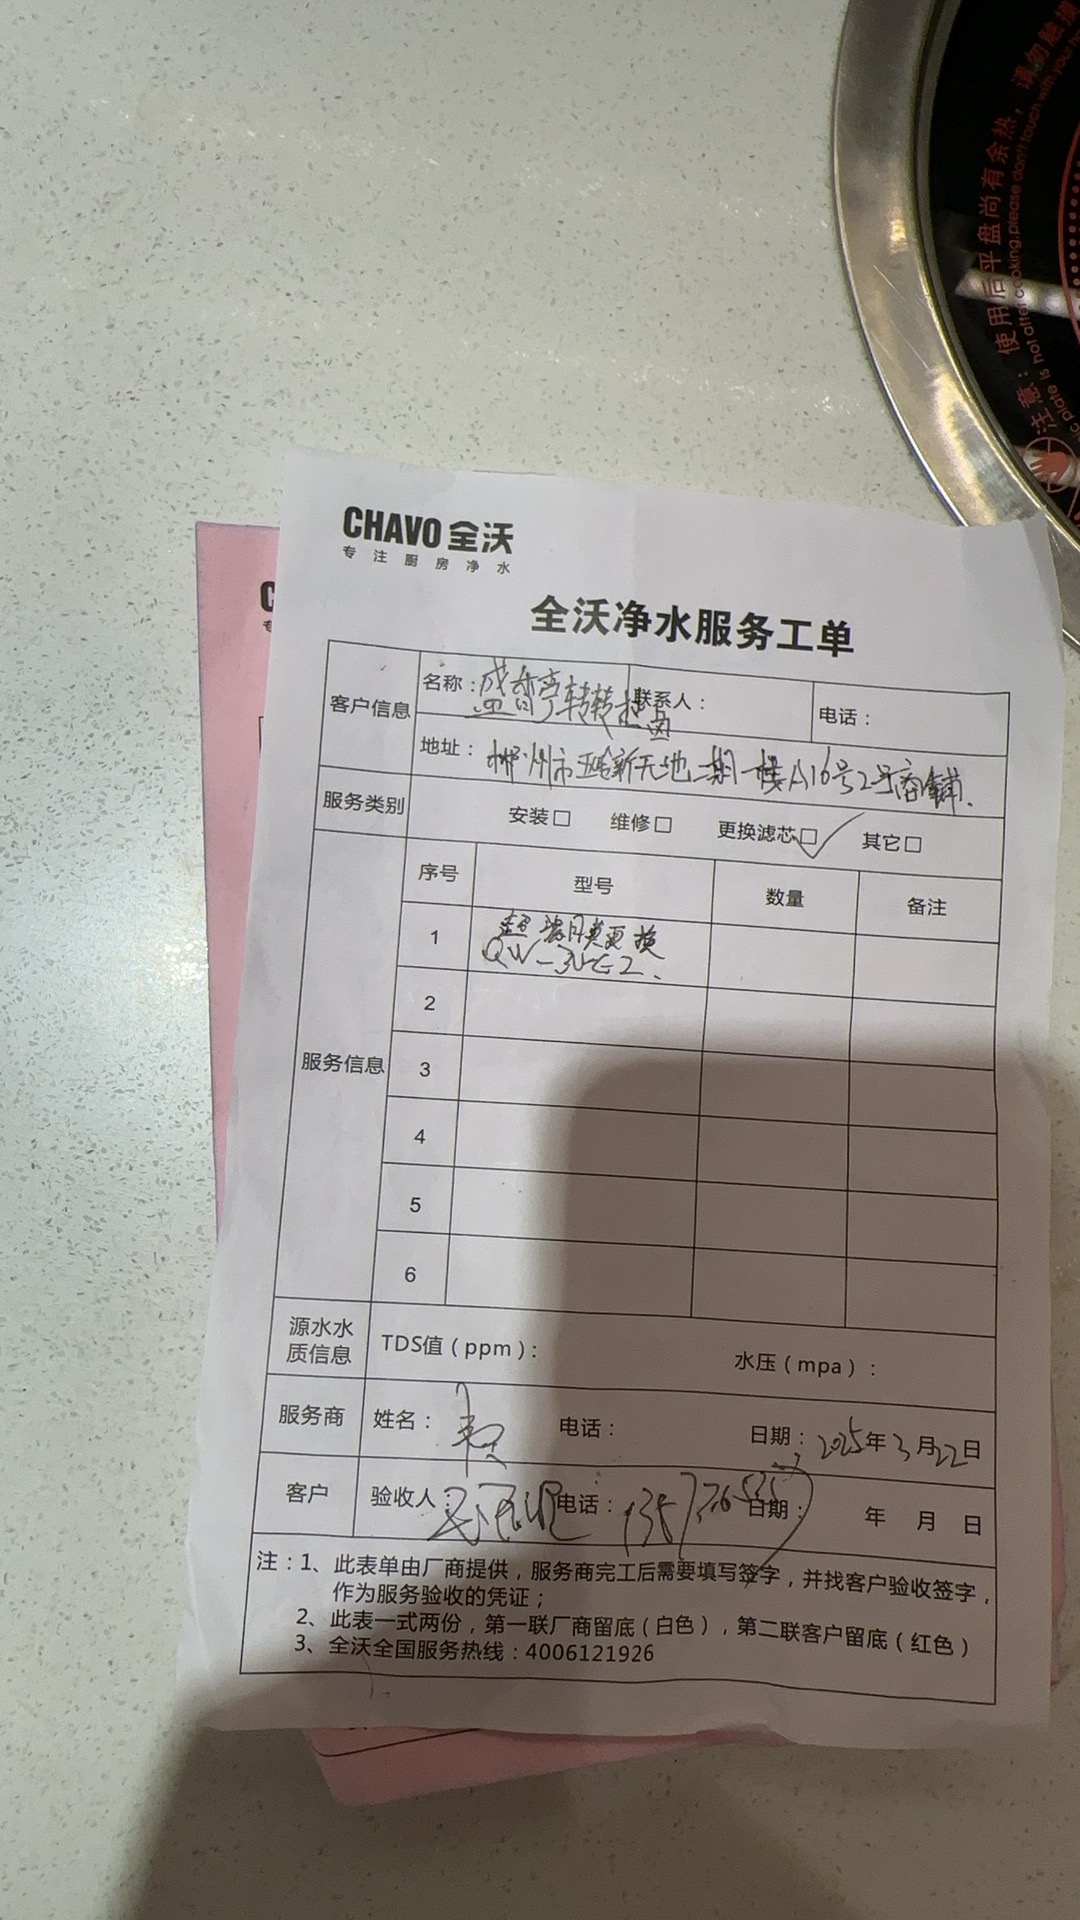 使用后平盘尚有余热，请勿触摸
注意：
CHAVO 全沃
专注厨房净水
全沃净水服务工单
客户信息
名称：盛香亭转转热卤
联系人：
电话：
地址：郴州市 新天地二期一楼A16号2号商铺.
服务类别
安装□ 维修□ 更换滤芯□✓ 其它□
服务信息
序号 型号 数量 备注
1 更换
QW-
2
3
4
5
6
源水水质信息
TDS值（ppm）：
水压（mpa）：
服务商 姓名： 电话： 日期：2025年3月22日
客户 验收人 电话： 日期： 年 月 日
注：1、此表单由厂商提供，服务商完工后需要填写签字，并找客户验收签字，
作为服务验收的凭证；
2、此表一式两份，第一联厂商留底（白色），第二联客户留底（红色）
3、全沃全国服务热线：4006121926